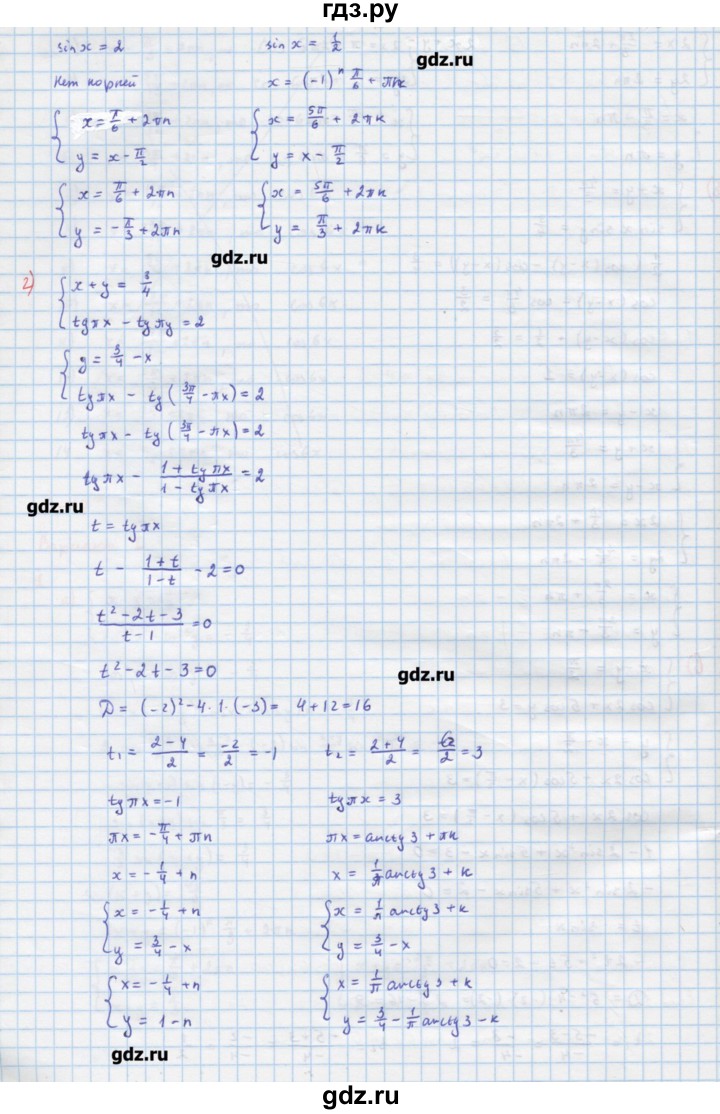 гдз.ру
sin x = 2    sin x = 1/2
Нет корней    x = (-1)ⁿ π/6 + πk
gdz.ru
{ x = π/6 + 2πn    { x = 5π/6 + 2πk
y = x - π/2    y = x - π/2
{ x = π/6 + 2πn    { x = 5π/6 + 2πk
y = -π/3 + 2πn    y = π/3 + 2πk
gdz.ru
г) { x + y = 3/4
tgπx - tgπy = 2
{ y = 3/4 - x
tgπx - tg(3π/4 - πx) = 2
tgπx - tg(3π/4 - πx) = 2
tgπx - (1 + tgπx)/(1 - tgπx) = 2
gdz.ru
t = tgπx
t - (1+t)/(1-t) - 2 = 0
(t² - 2t - 3)/(t - 1) = 0
t² - 2t - 3 = 0
gdz.ru
D = (-2)² - 4·1·(-3) = 4 + 12 = 16
t₁ = (2-4)/2 = -2/2 = -1    t₂ = (2+4)/2 = 6/2 = 3
tgπx = -1    tgπx = 3
πx = -π/4 + πn    πx = arctg3 + πk
x = -1/4 + n    x = 1/π arctg3 + k
{ x = -1/4 + n    { x = 1/π arctg3 + k
y = 3/4 - x    y = 3/4 - x
{ x = -1/4 + n    { x = 1/π arctg3 + k
y = 1 - n    y = 3/4 - 1/π arctg3 - k
gdz.ru
gdz.ru
gdz.ru